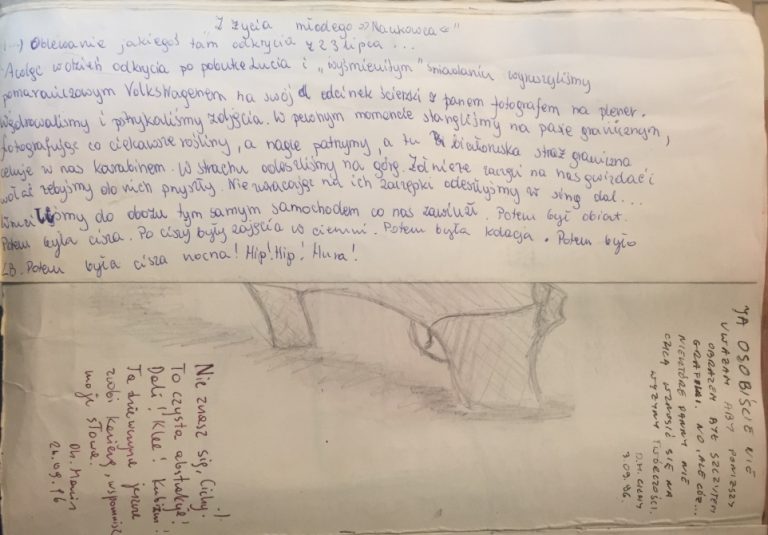 Z życia młodego »Naukowca«"
(...) Oblewanie jakiegoś tam odkrycia z 23 lipca...
A więc w dzień odkrycia po pobudce Łucia i „wyśmienitym" śniadaniu wyruszyliśmy
pomarańczowym Volkswagenem na swój odcinek ścieżki z panem fotografem na plener.
Wędrowaliśmy i pstrykaliśmy zdjęcia. W pewnym momencie stanęliśmy na pasie granicznym,
fotografując co ciekawsze rośliny, a nagle patrzymy, a tu białoruska straż graniczna
celuje w nas karabinem. W strachu odeszliśmy na górę. Żołnierze zaczęli na nas gwizdać i
wołać żebyśmy do nich przyszły. Nie zwracając na ich zaczepki odeszłyśmy w siną dal...
Wróciliśmy do obozu tym samym samochodem co nas zawiózł. Potem był obiad.
Potem była cisza. Po ciszy były zajęcia w ciemni. Potem była kolacja. Potem było
ŁB. Potem była cisza nocna! Hip! Hip! Hura!
JA OSOBIŚCIE NIE
UWAŻAM ABY POWYŻSZY
OBRAZEK BYŁ SZCZYTEM
GRAFIKI. NO, ALE CÓŻ...
NIEKTÓRE PANNY NIE
CHCĄ WZNOSIĆ SIĘ NA
WYŻYNY TWÓRCZOŚCI.
D.H. CICHY
3.09.96.
Nie znasz się, Cichy! :)
To czysta abstrakcja!
Dali! Klee! Kubizm!
Ta dziewczyna jeszcze
zrobi karierę, wspomnisz
moje słowa.
Dh. Marcin
24.09.96